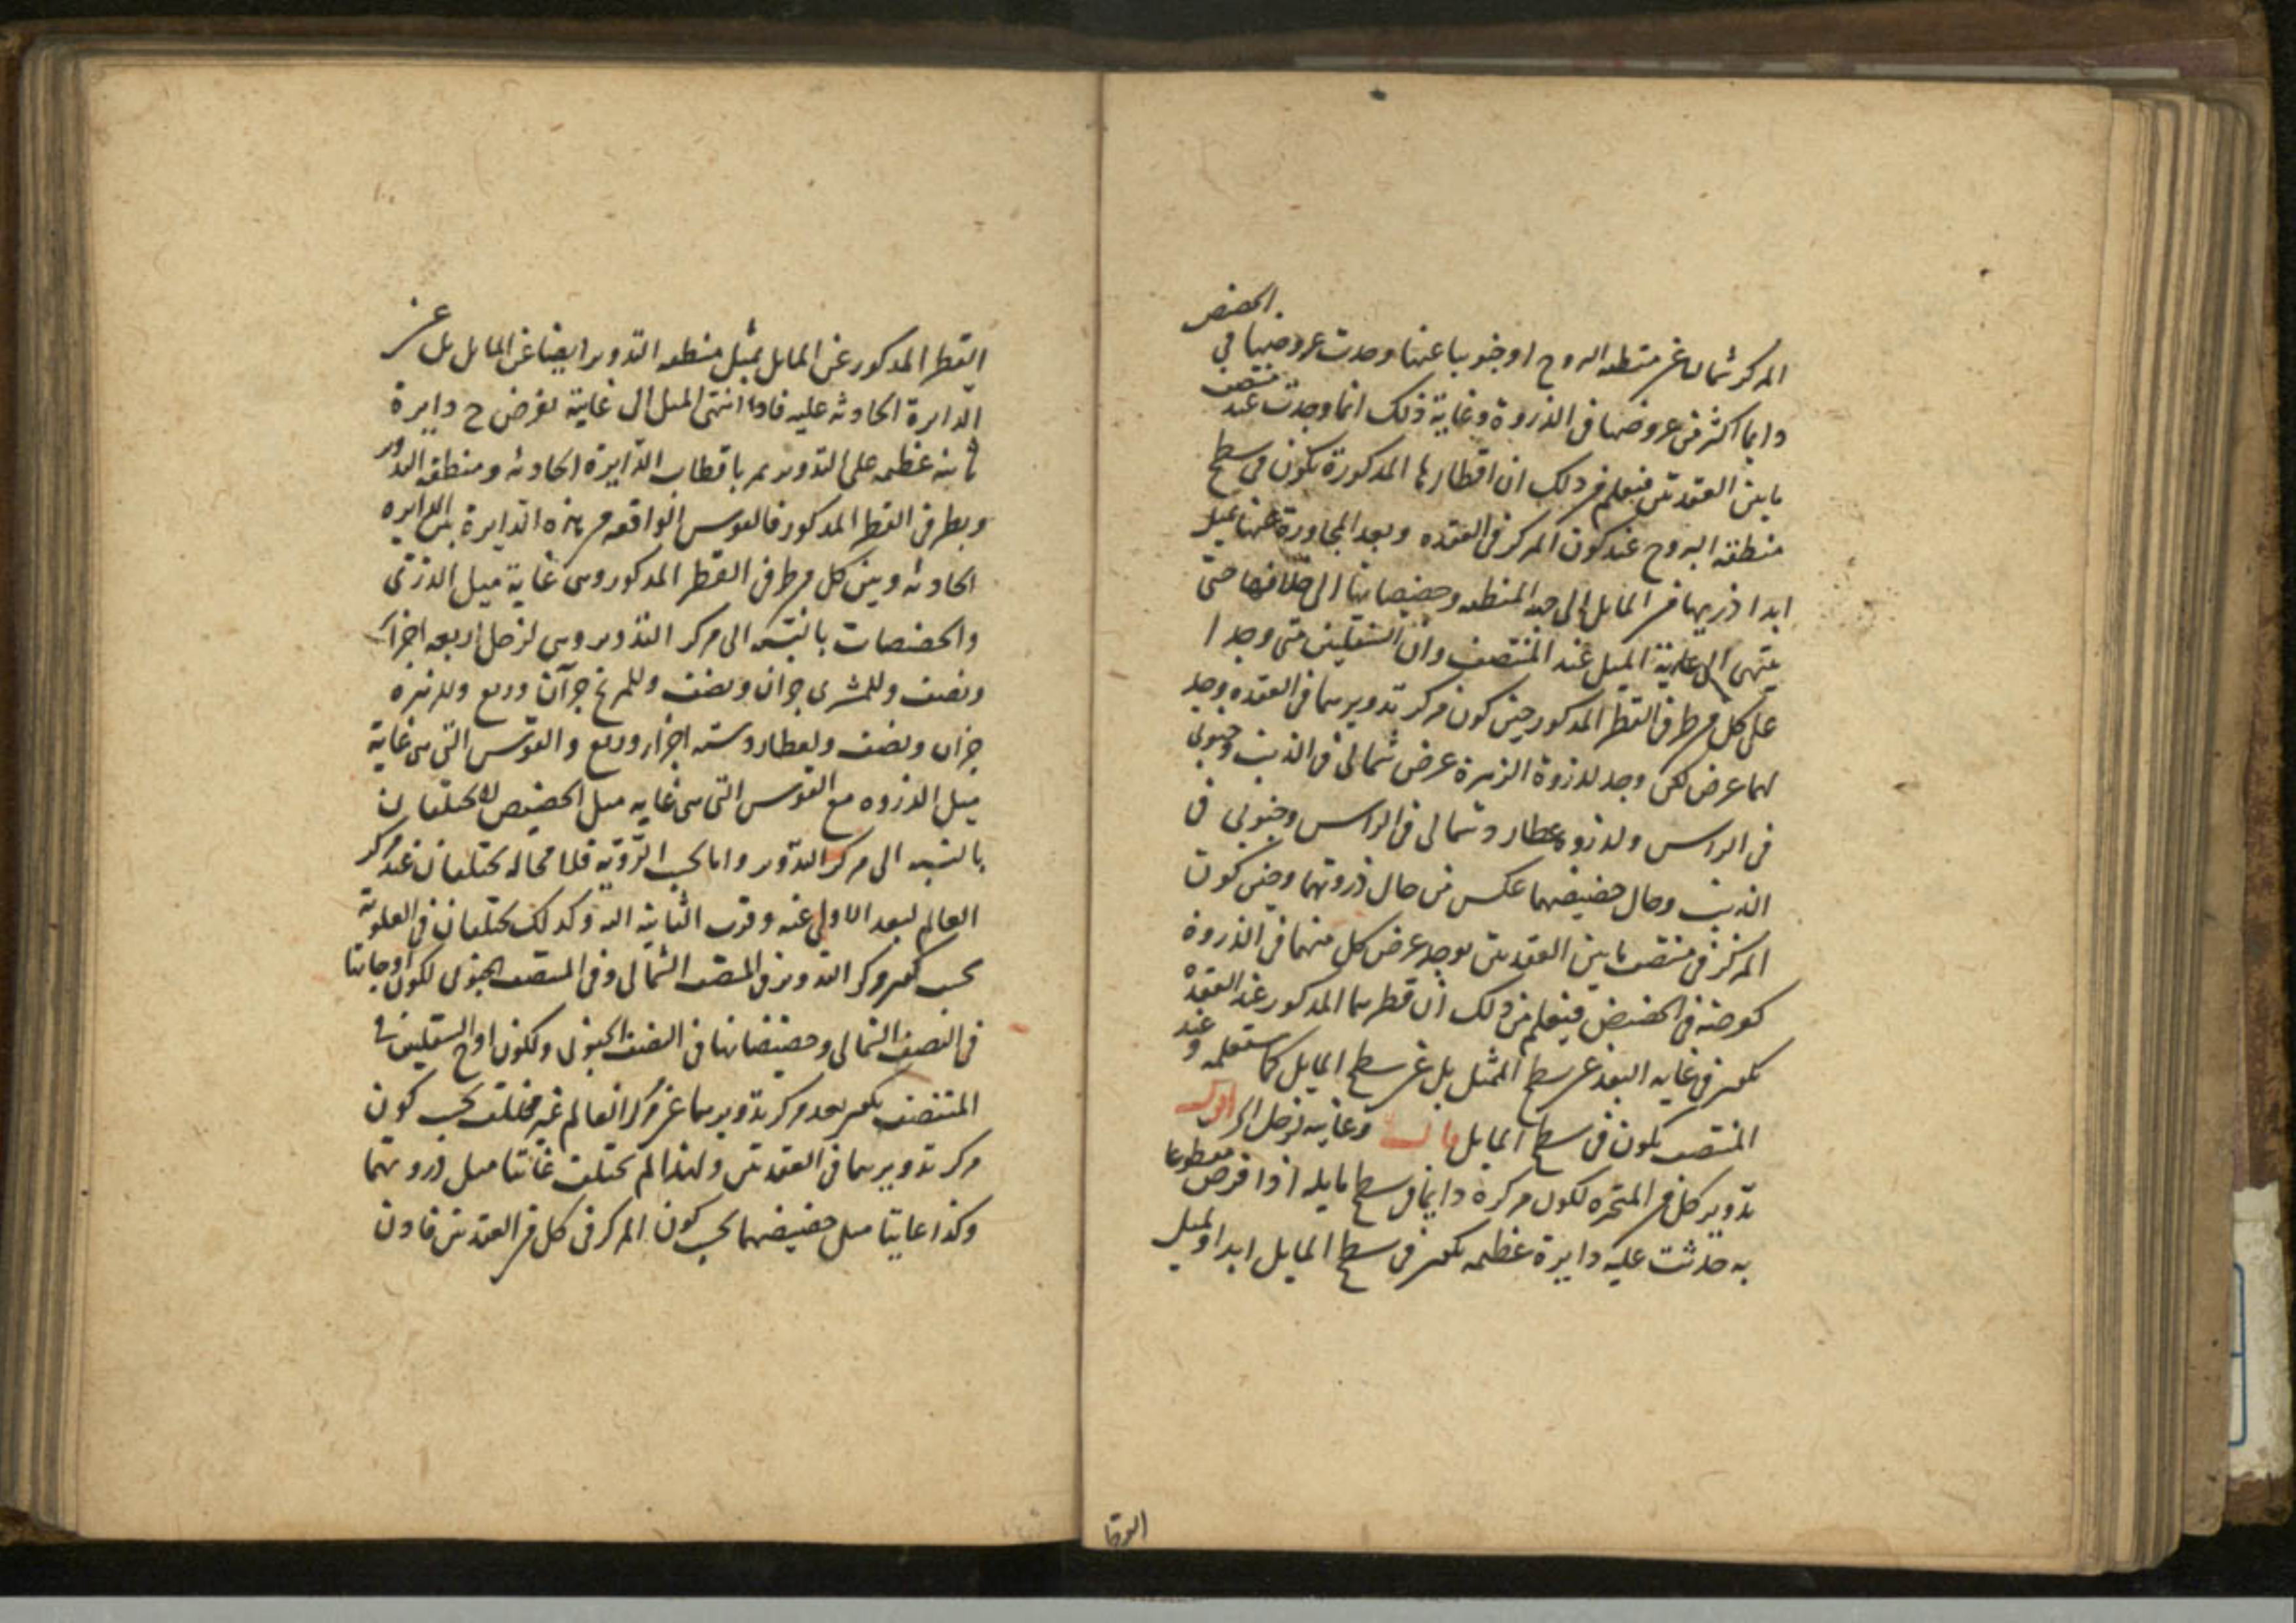 المركز شمالا عن منطقه البروج او جنوبيا عنها وجدت عروضها في الحضيض
دايما اكثر من عروضها في الذروة وغاية ذلك انما وجدت عند منتصف
ما بين العقدتين فيعلم من ذلك ان اقطارها المذكورة تكون في سطح
منطقة البروج عند كون المركز في العقده وبعد المجاورة عنها تميل
ابدا ذريها من المايل الى جهة المنطقه وحضيضاتها الى خلافها حتى
ينتهي الى غاية الميل عند المنتصف وان السفليين متى وجدا
على كل من طرفي القطر المذكور حين كون مركز تدويريهما في العقده وجد
لهما عرض لكن وجد لذروة الزهرة عرض شمالي في الذنب وجنوبي
في الراس ولذروة عطارد شمالي في الراس وجنوبي في
الذنب وحال حضيضهما عكس من حال ذروتهما وحين كون
المركز في منتصف ما بين العقدتين يوجد عرض كل منهما في الذروة
كعرضه في الحضيض فيعلم من ذلك ان قطريهما المذكور عند العقدة
يكون في غايه البعد عن سطح الممثل بل عن سطح المايل كما ستعلمه وعند
المنتصف يكون في سطح المايل
تدوير كل من المتحيره لكون مركزه دايما في سطح مايله اذا فرض مقطوعا
به حدثت عليه دايرة عظيمه يكون في سطح المايل ابدا ولميل
القطر المذكور عن المايل يميل منطقه التدوير ايضا عن المايل بل عن
الدايرة الحادثه عليه فاذا انتهى الميل الى غايته نفرض ح دايرة
ثانيه عظيمه على التدوير تمر باقطاب الدايرة الحادثه ومنطقة التدوير
وبطرفي القطر المذكور فالقوس الواقعه من هذه الدايرة بين الدايره
الحادثه وبين كل من طرفي القطر المذكور وهي غاية ميل الذرى
والحضيضات بالنسبه الى مركز التدوير وهي لزحل اربعه اجزاء
ونصف وللمشترى جزآن ونصف وللمريخ جزآن وربع وللزهره
جزآن ونصف ولعطارد سته اجزاء وربع والقوس التي هي غاية
ميل الذروه مع القوس التي هي غايه ميل الحضيض لا تختلفان
بالنسبه الى مركز التدوير واما بحسب الرؤية فلا محاله تختلفان عند مركز
العالم لبعد الاولى عنه وقرب الثانية اليه وكذلك تختلفان في العلوية
بحسب كون مركز التدوير في النصف الشمالي وفي النصف الجنوبي لكون اوجاتها
في النصف الشمالي وحضيضاتها في النصف الجنوبي ولكون اوج السفليين في
المنتصف يكون بعد مركز تدويريهما عن مركز العالم غير مختلف بحسب كون
مركز تدويريهما في العقدتين ولهذا لم تختلف غايتا ميل ذروتهما
وكذا غايتا ميل حضيضهما بحسب كون المركز في كل من العقدتين فاذن